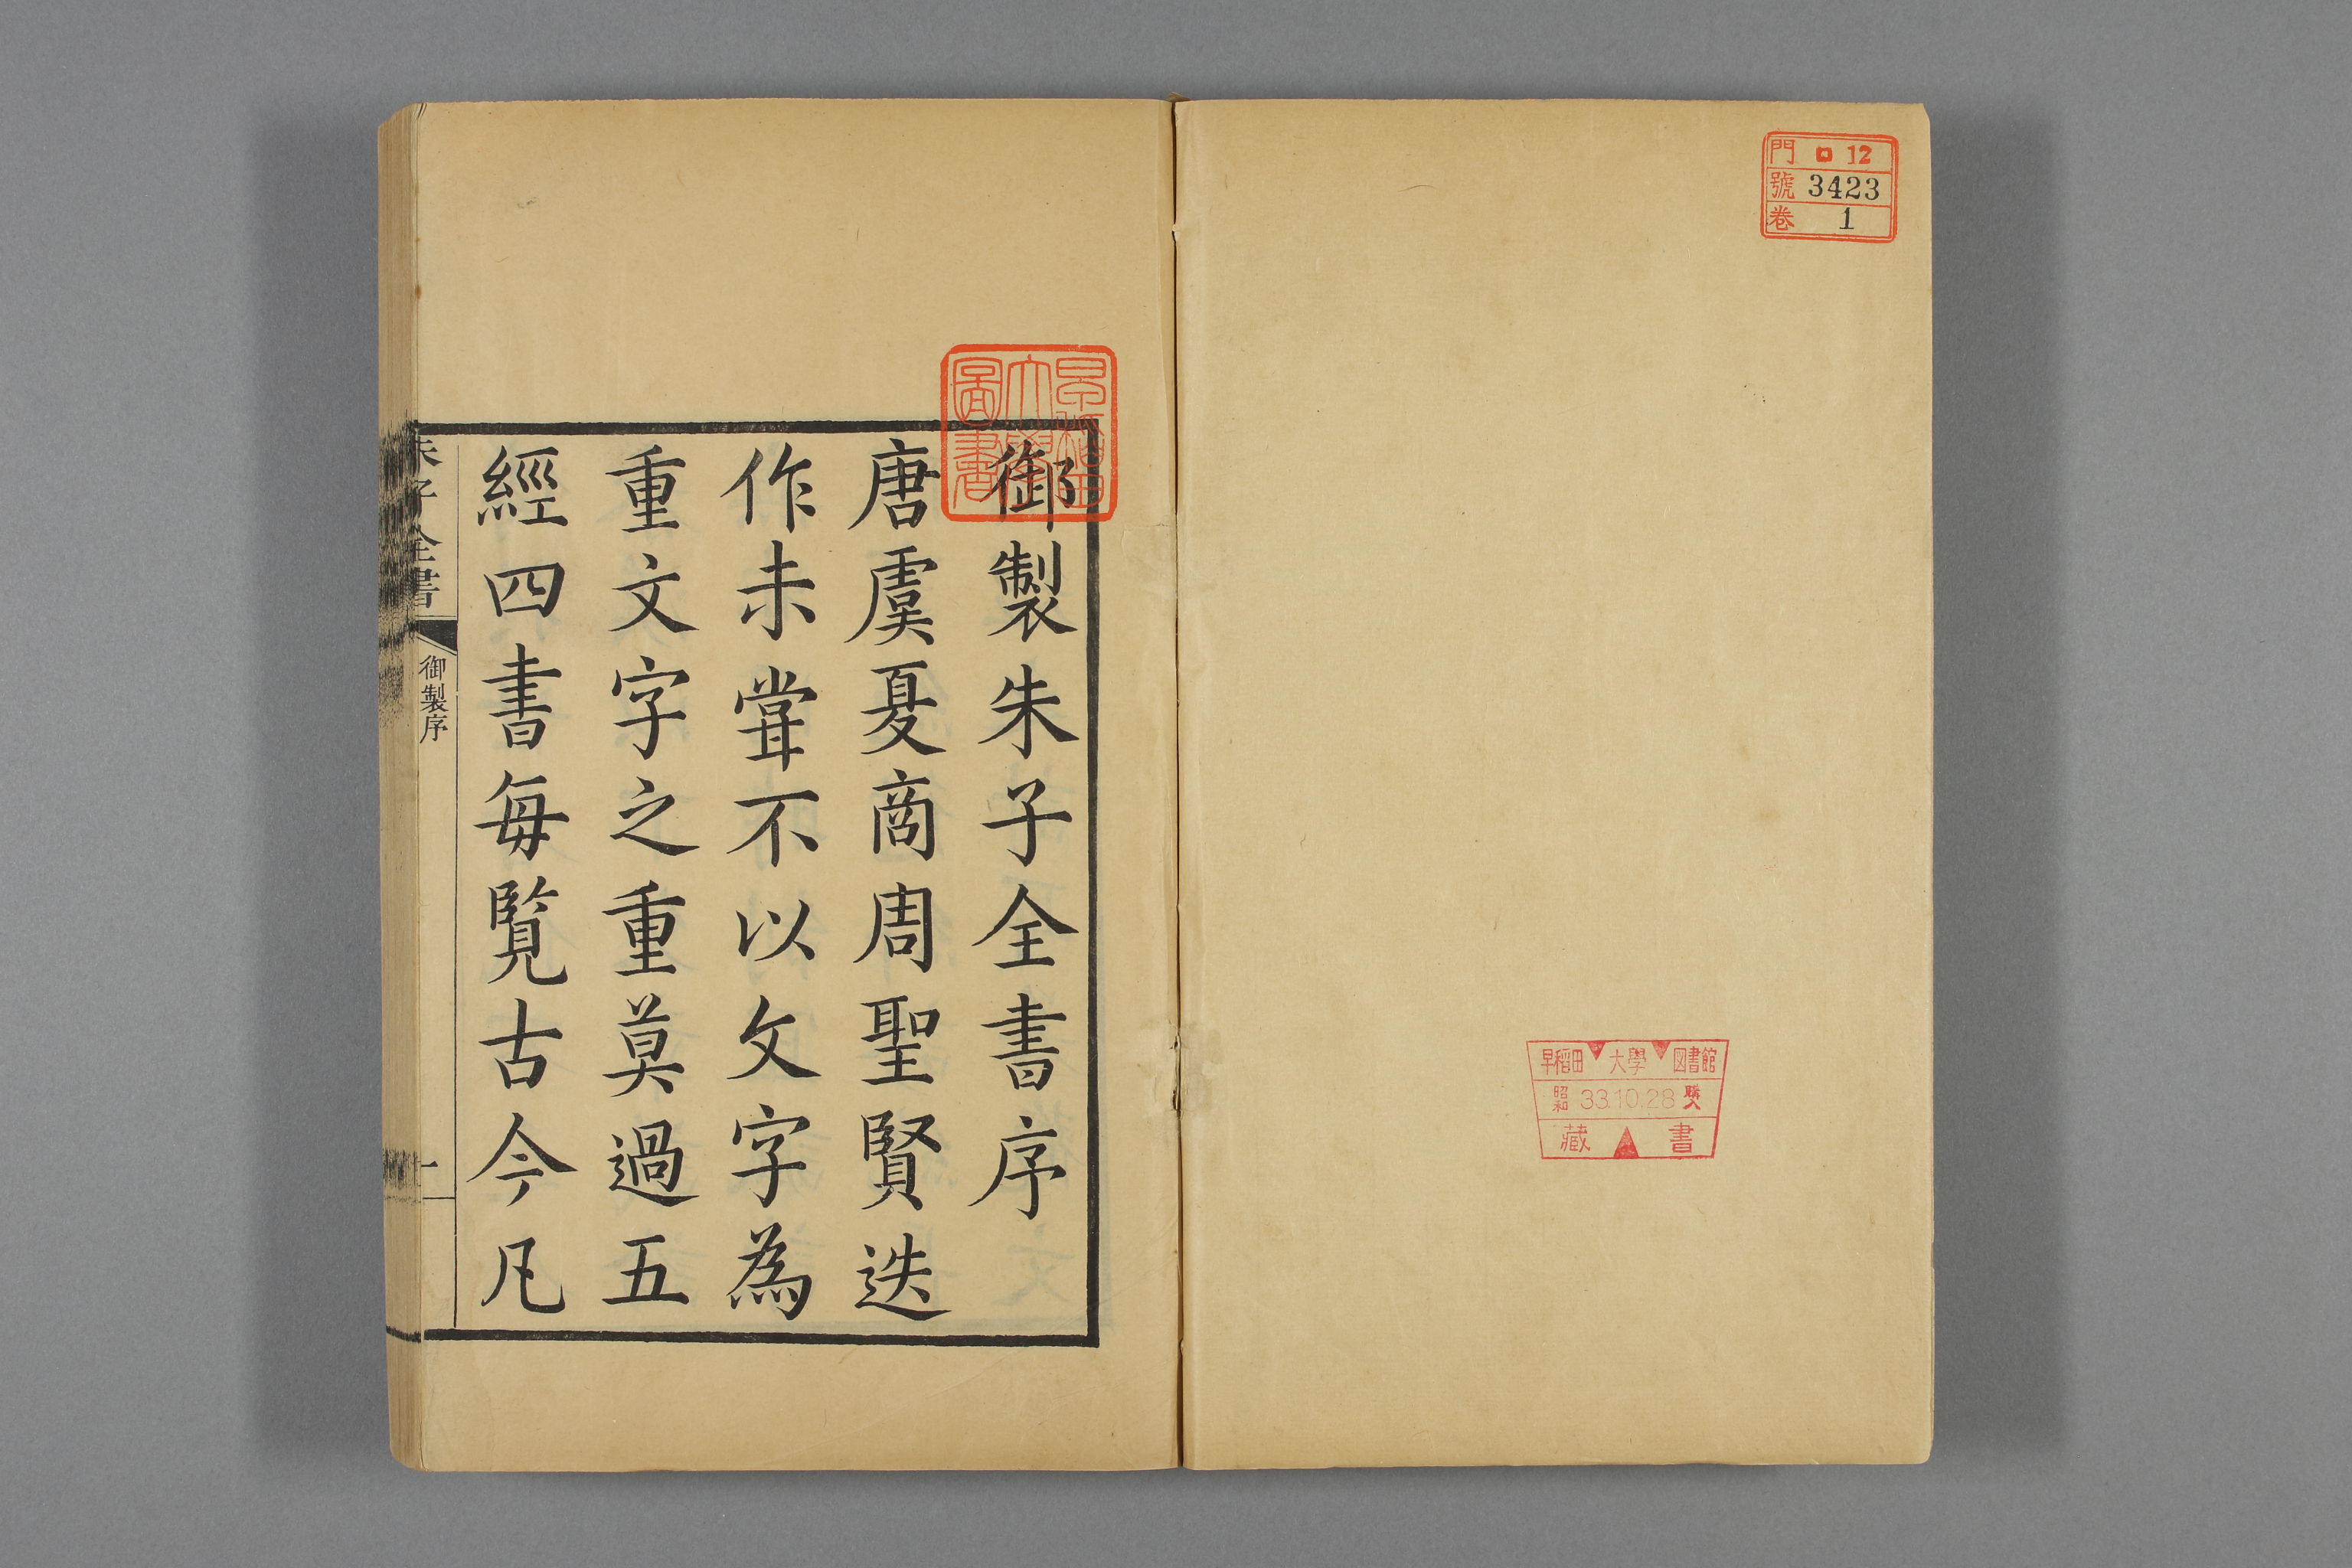 門 ロ 12
號 3423
巻 1
早稲田 大學 図書館
昭和 33.10.28 購入
藏 書
早稲田
大學
圖書
御製朱子全書序
唐虞夏商周聖賢迭
作未甞不以文字為
重文字之重莫過五
經四書每覽古今凡
朱子全書
御製序
一